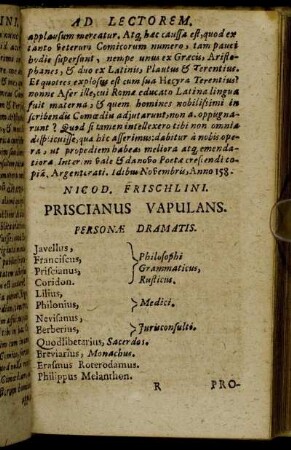 AD LECTOREM.
applausum mereatur. Atq; hæc caussa est, quod ex
tanto veterum Comicorum numero, tam pauci
hodie supersunt, nempe unus ex Græcis, Aristo-
phanes, & duo ex Latinis, Plautus & Terentius.
Et quoties explosus est cum sua Hecyra Terentius?
nonne Afer ille, cui Romæ educato Latina lingua
fuit materna, & quem homines nobilissimi in
scribendis Comœdiis adjutarunt, non a. oppugna-
runt? Quod si tamen intellexero tibi non omnia
displicuisse, quæ hic asserimus: dabitur a nobis ope-
ra, ut propediem habeas meliora atq; emenda-
tiora Interim vale & da novo Poetæ crescendi co-
piā. Argentorati. Idibus Novembris, Anno 158.
NICOD. FRISCHLINI.
PRISCIANUS VAPULANS.
PERSONÆ DRAMATIS.
Javellus,
Franciscus, Philosophi
Priscianus, Grammaticus,
Coridon. Rusticus.
Lilius,
Philonius, Medici.
Nevisanus,
Berberius, Jurisconsulti.
Quodlibetarius, Sacerdos.
Breviarius, Monachus.
Erasmus Roterodamus.
Philippus Melanthon.
R PRO-